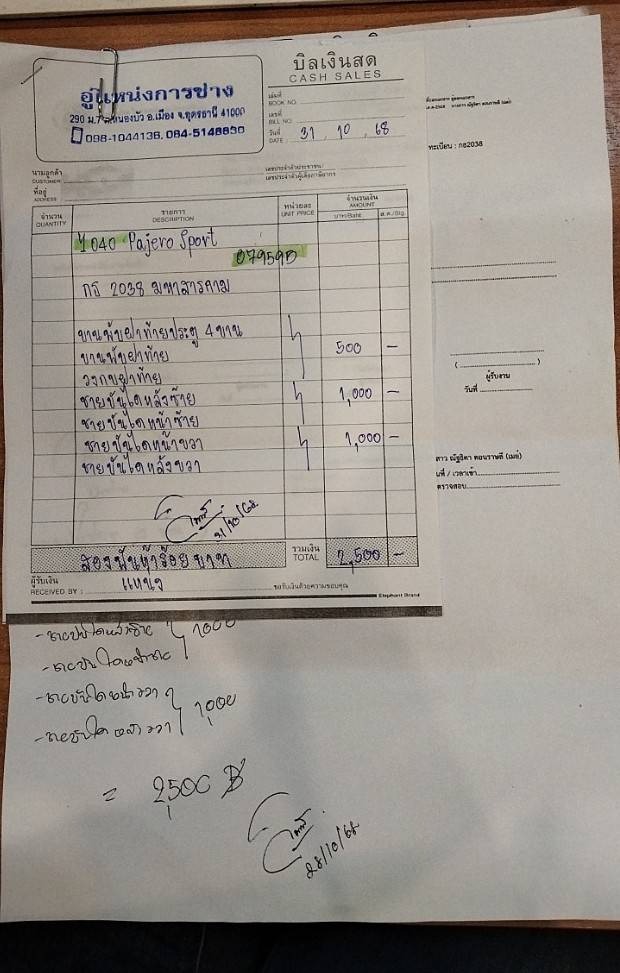 อู่แหน่งการช่าง
290 ม.7 ต.หนองบัว อ.เมือง จ.อุดรธานี 41000
098-1044136, 084-5148830
บิลเงินสด
CASH SALES
เล่มที่
BOOK NO.
เลขที่
BILL NO.
วันที่
DATE 31 10 68
ทะเบียน : กธ2038
นามลูกค้า
CUSTOMER
เลขประจำตัวประชาชน/
เลขประจำตัวผู้เสียภาษีอากร
ที่อยู่
ADDRESS
จำนวน
QUANTITY
รายการ
DESCRIPTION
หน่วยละ
UNIT PRICE
จำนวนเงิน
AMOUNT
บาท/Baht
ส.ต./Stg.
1040 Pajero Sport
07959D
กธ 2038 มหาสารคาม
บานพับฝาท้ายประตู 4 บาน
บานพับฝาท้าย 500 -
วงกบฝาท้าย
ชายบันไดหลังซ้าย 1,000 -
ชายบันไดหน้าซ้าย
ชายบันไดหน้าขวา 1,000 -
ชายบันไดหลังขวา
31/10/68
สองพันห้าร้อยบาท
รวมเงิน
TOTAL 2,500 -
ผู้รับเงิน
RECEIVED BY : แหน่ง
ขอรับเงินด้วยความขอบคุณ
Elephant Brand
(
)
ผู้รับงาน
วันที่
ตรวจสอบ
- ชายบันไดหลังซ้าย 1000
- ชายบันไดหน้าซ้าย
- ชายบันไดหน้าขวา 1,000
- ชายบันไดหลังขวา
= 2,500 ฿
28/10/68